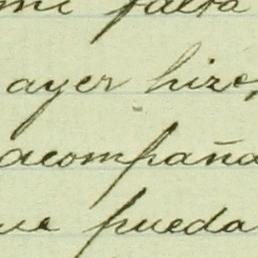 mi falta
ayer hizo,
acompaña
ue pueda